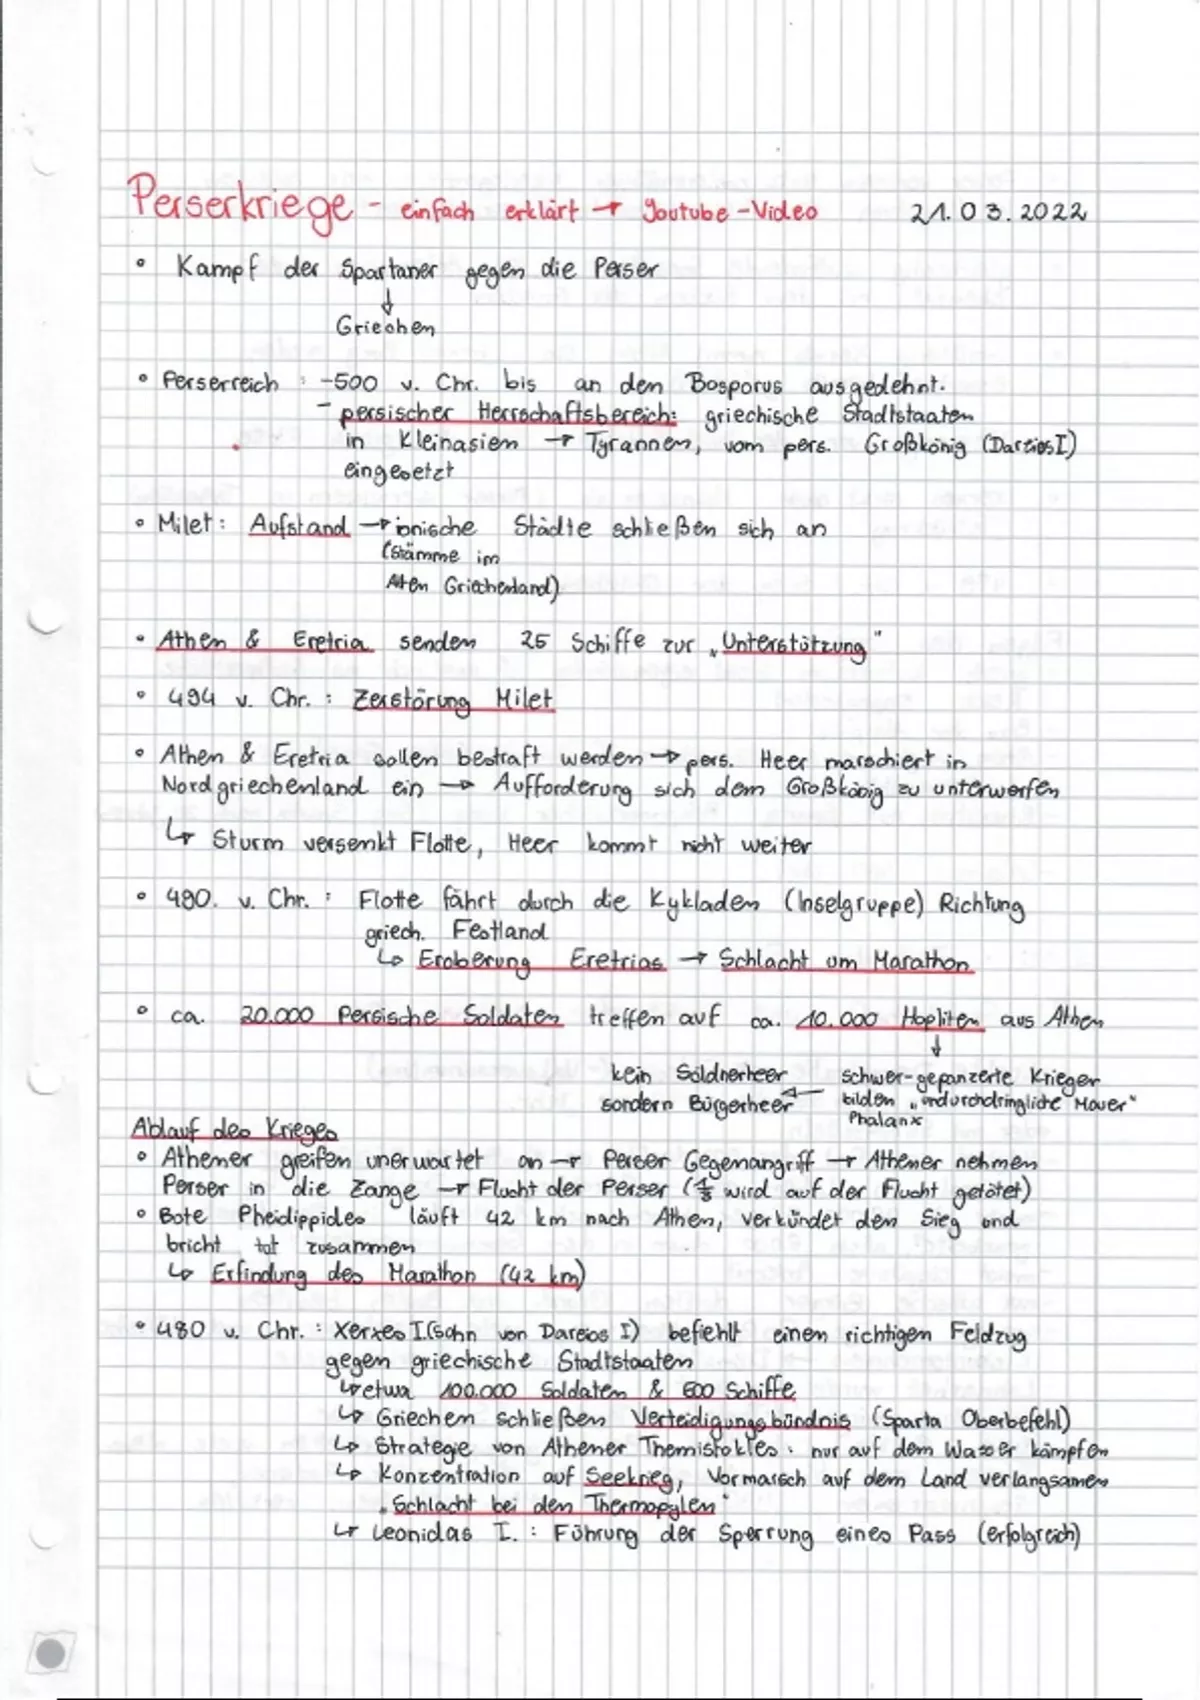 Perserkriege - einfach erklärt → Youtube-Video 21.03.2022
• Kampf der Spartaner gegen die Perser
↓
Griechen
• Perserreich : -500 v. Chr. bis an den Bosporus ausgedehnt.
- persischer Herrschaftsbereich: griechische Stadtstaaten
in Kleinasien → Tyrannen, vom pers. Großkönig (Dareios I)
eingesetzt
• Milet: Aufstand → ionische Städte schließen sich an
(Stämme im
Alten Griechenland)
• Athen & Eretria senden 25 Schiffe zur „Unterstützung"
• 494 v. Chr. : Zerstörung Milet
• Athen & Eretria sollen bestraft werden → pers. Heer marschiert in
Nordgriechenland ein → Aufforderung sich dem Großkönig zu unterwerfen
↳ Sturm versenkt Flotte, Heer kommt nicht weiter
• 490. v. Chr. : Flotte fährt durch die Kykladen (Inselgruppe) Richtung
griech. Festland
↳ Eroberung Eretrias → Schlacht um Marathon
• ca. 20.000 Persische Soldaten treffen auf ca. 10.000 Hopliten aus Athen
↓
kein Söldnerheer schwer-gepanzerte Krieger
sondern Bürgerheer ← bilden „undurchdringliche Mauer"
Phalanx
Ablauf des Krieges
• Athener greifen unerwartet an → Perser Gegenangriff → Athener nehmen
Perser in die Zange → Flucht der Perser (1/3 wird auf der Flucht getötet)
• Bote Pheidippides läuft 42 km nach Athen, verkündet den Sieg und
bricht tot zusammen
↳ Erfindung des Marathon (42 km)
• 480 v. Chr. : Xerxes I.(sohn von Dareios I) befiehlt einen richtigen Feldzug
gegen griechische Stadtstaaten
↳ etwa 100.000 Soldaten & 600 Schiffe
↳ Griechen schließen Verteidigungsbündnis (Sparta Oberbefehl)
↳ Strategie von Athener Themistokles : nur auf dem Wasser kämpfen
↳ Konzentration auf Seekrieg, Vormarsch auf dem Land verlangsamen
„Schlacht bei den Thermopylen"
↳ Leonidas I. : Führung der Sperrung eines Pass (erfolgreich)